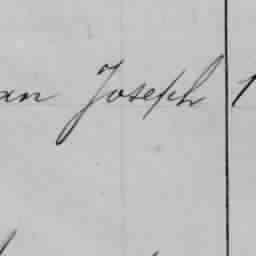 an Joseph 1